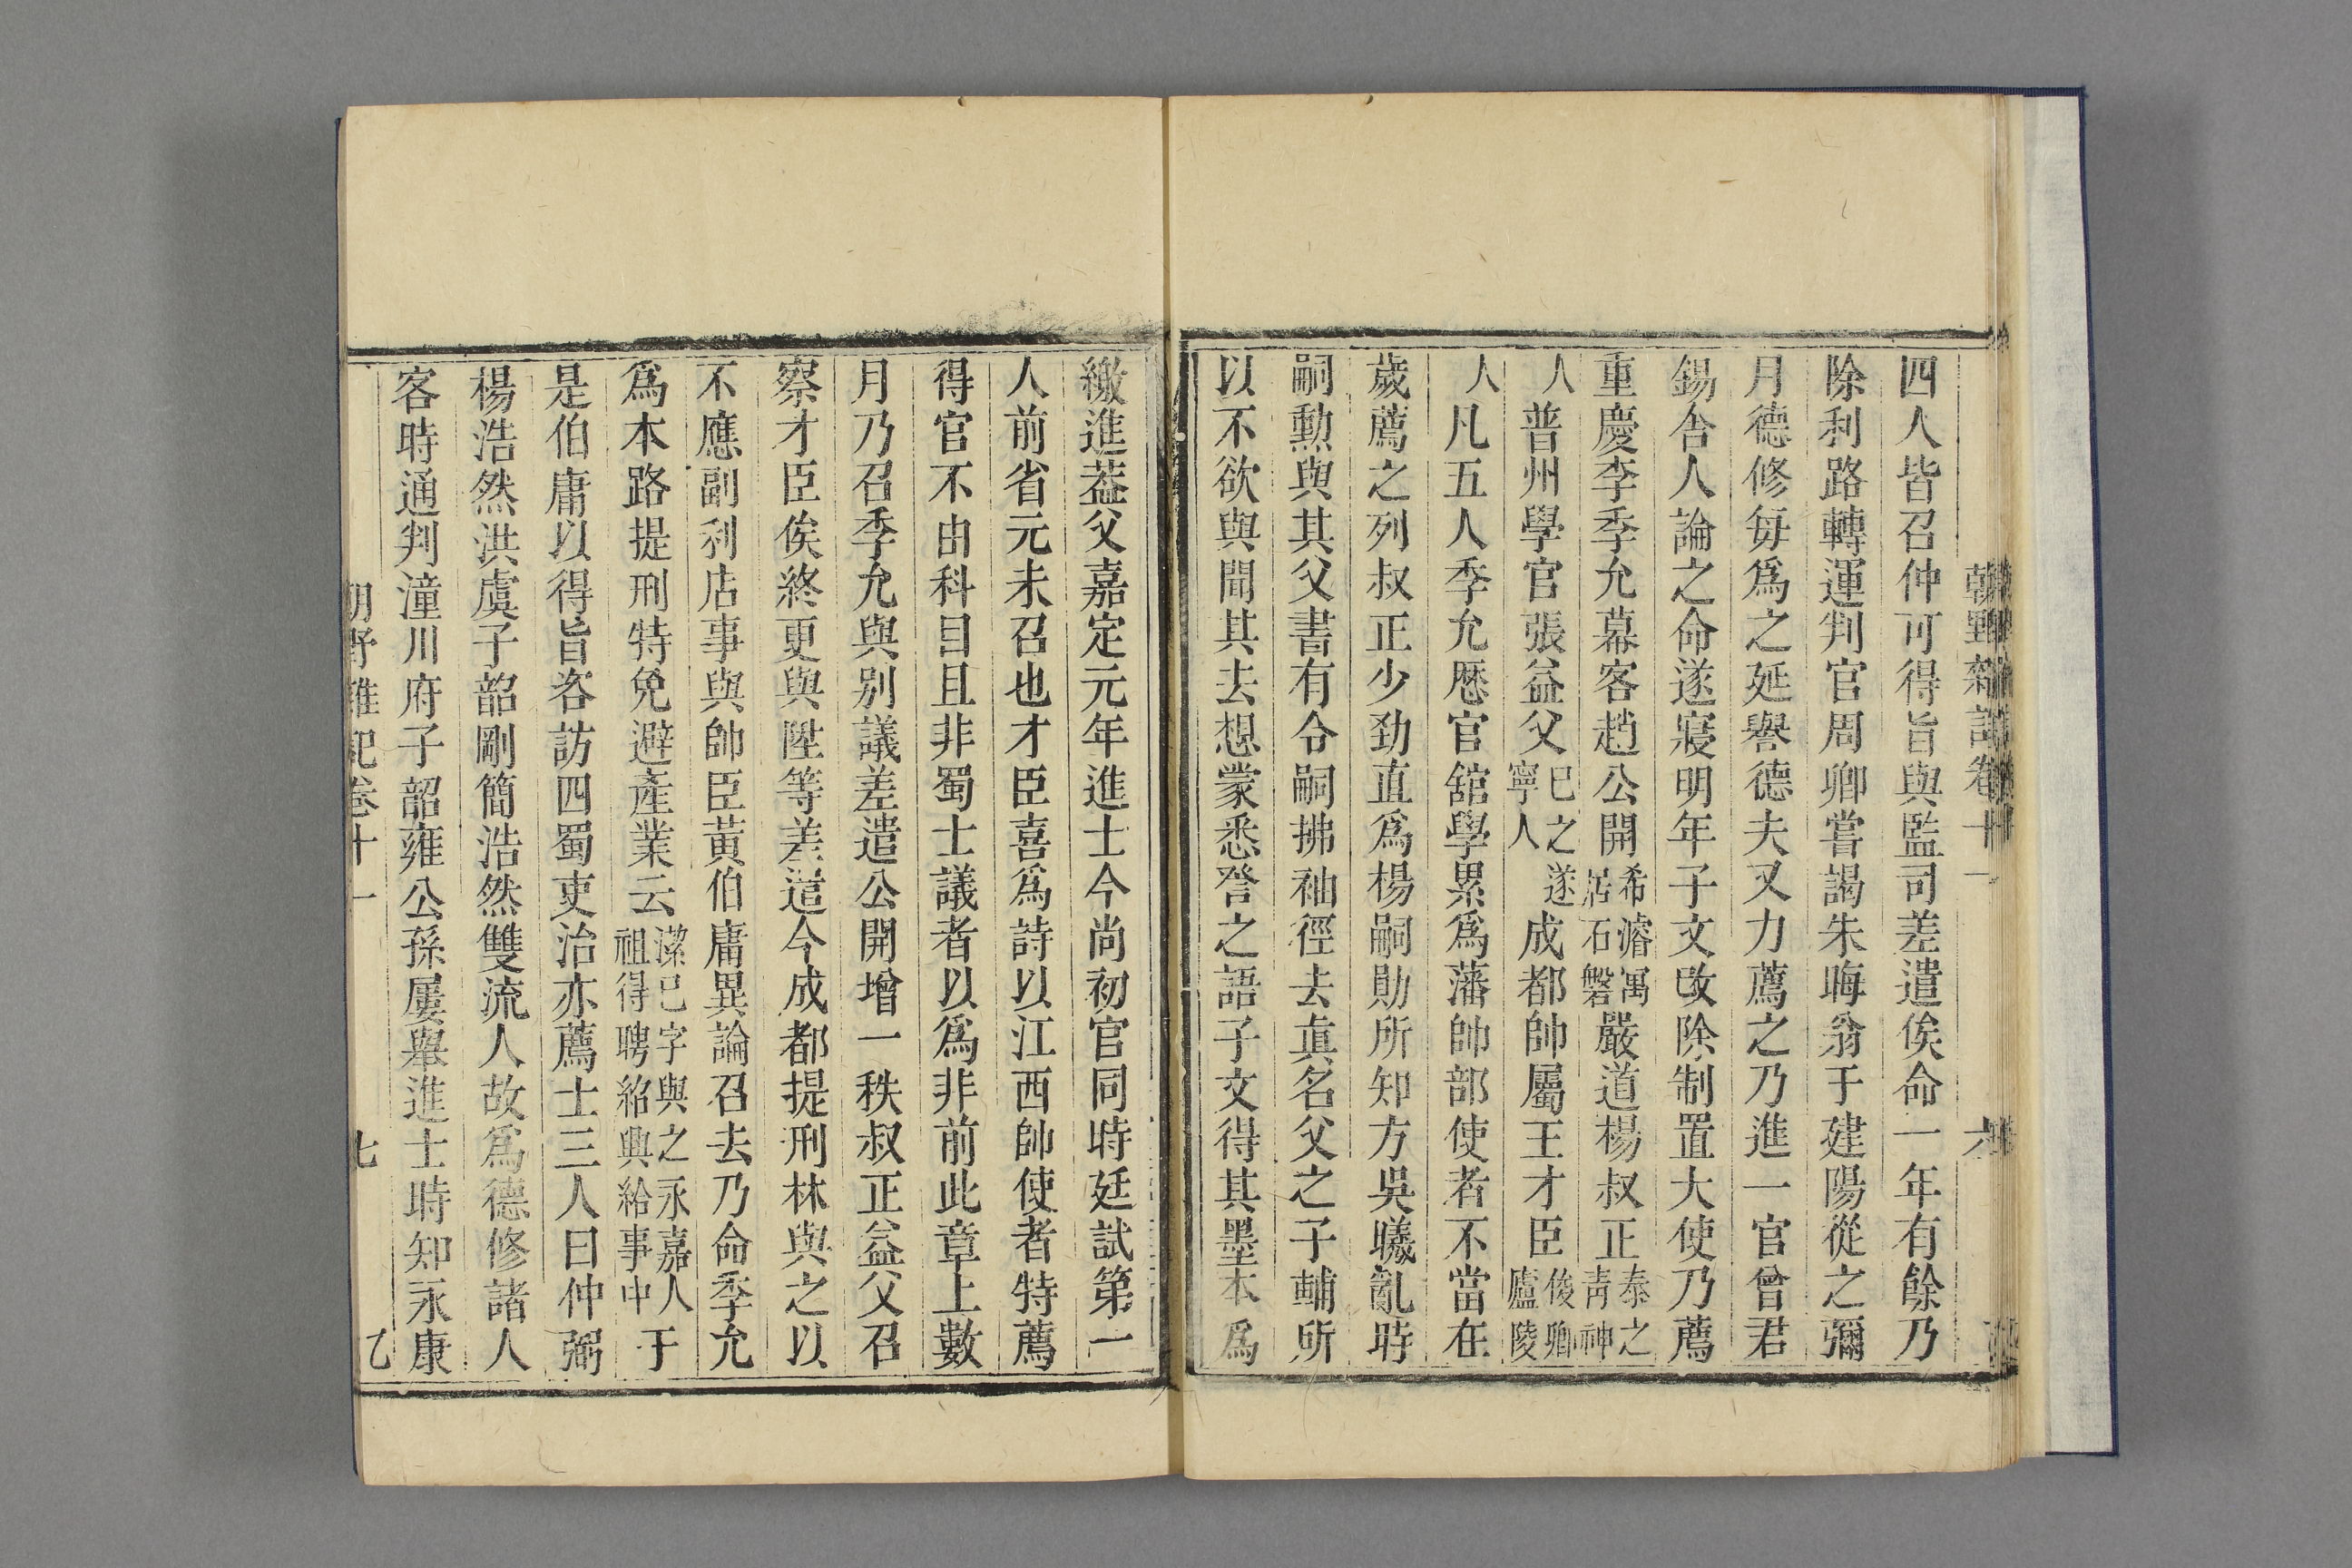 朝野雜記卷十一 六
四人皆召仲可得旨與監司差遣俟命一年有餘乃
除利路轉運判官周卿嘗謁朱晦翁于建陽從之彌
月德修每爲之延譽德夫又力薦之乃進一官曾君
錫舍人論之命遂寢明年子文改除制置大使乃薦
重慶李季允幕客趙公開希濬寓居石磐嚴道楊叔正泰之青神
人普州學官張益父巳之遂寧人成都帥屬王才臣俊卿廬陵
人凡五人季允歷官舘學累爲藩帥部使者不當在
歲薦之列叔正少勁直爲楊嗣勛所知方吳曦亂時
嗣勲與其父書有合嗣拂袖徑去眞名父之子輔所
以不欲與聞其去想蒙悉詧之語子文得其墨本爲
繳進葢父嘉定元年進士今尚初官同時廷試第一
人前省元未召也才臣喜爲詩以江西帥使者特薦
得官不由科目且非蜀士議者以爲非前此章上數
月乃召季允與别議差遣公開增一秩叔正益父召
察才臣俟終更與陞等差遣今成都提刑林與之以
不應副利店事與帥臣黃伯庸異論召去乃命季允
爲本路提刑特免避產業云潔巳字與之永嘉人祖得聘紹興給事中于
是伯庸以得旨咨訪四蜀吏治亦薦士三人曰仲弼
楊浩然洪虞子韶剛簡浩然雙流人故爲德修諸人
客時通判潼川府子韶雍公孫屢舉進士時知永康
朝野雜記卷十一 七 乙